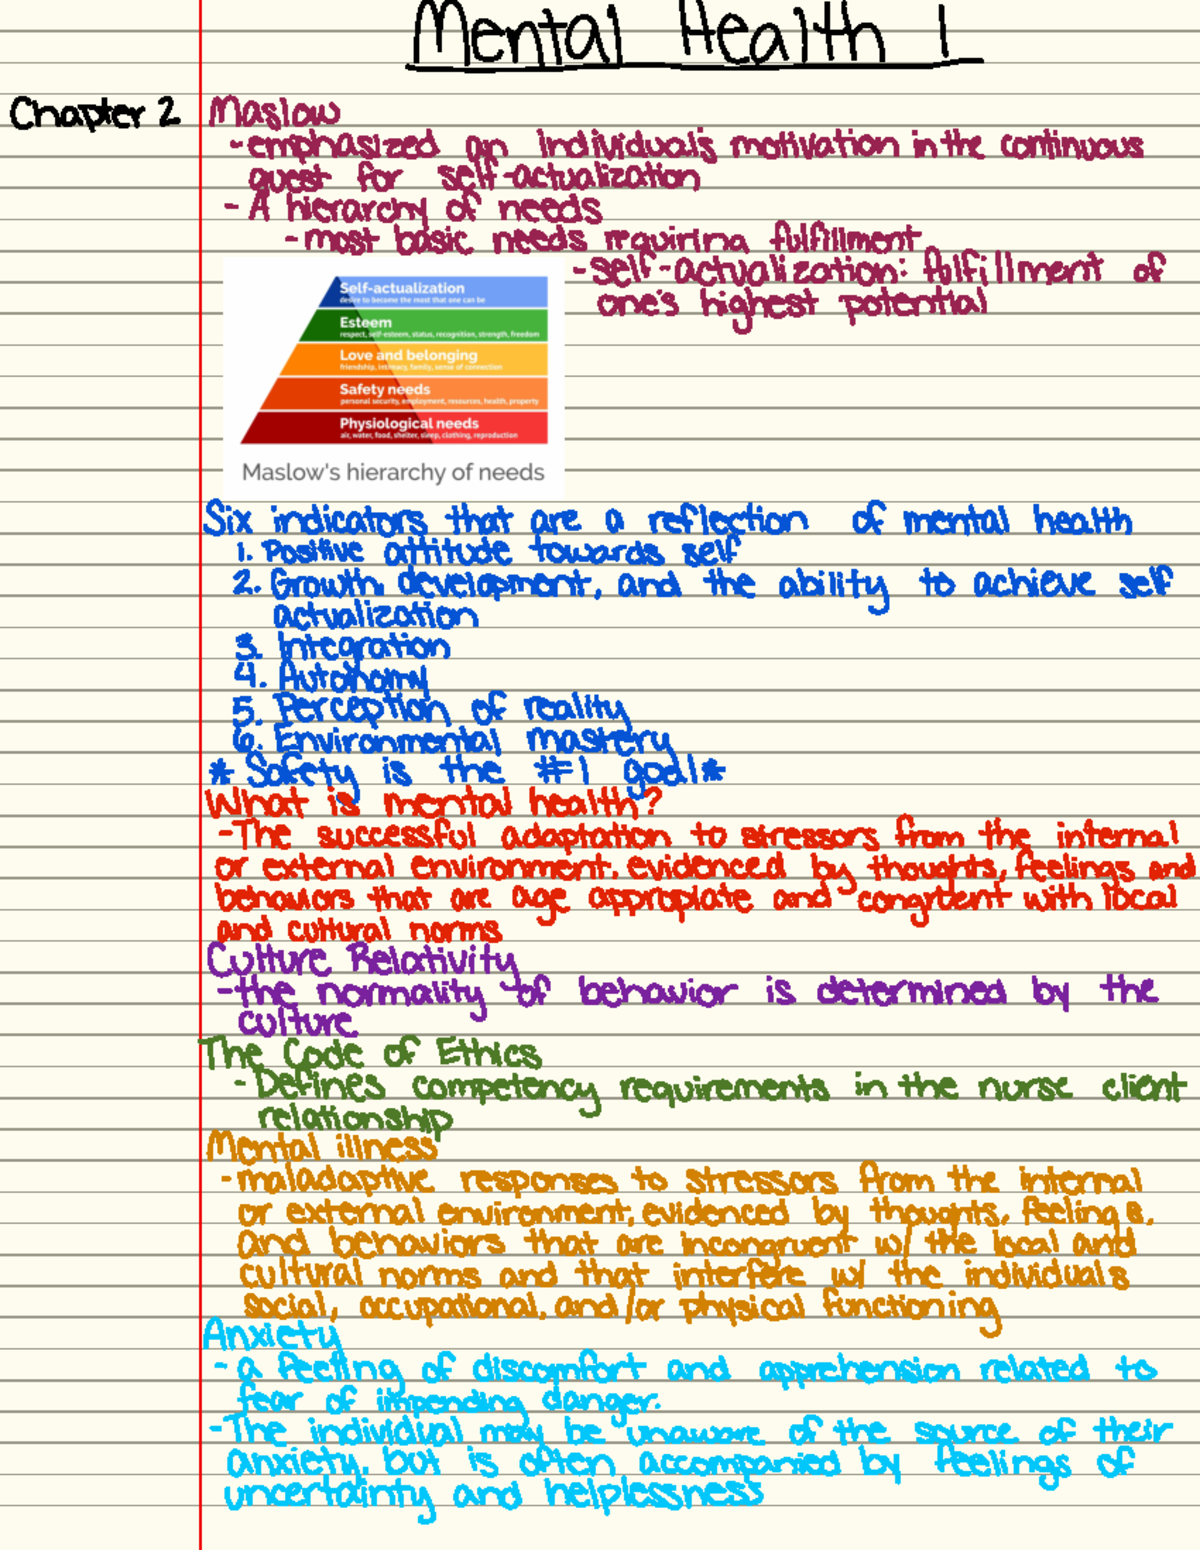 Mental Health 1
Chapter 2
Maslow
- emphasized an individual's motivation in the continuous
quest for self-actualization
- A hierarchy of needs
- most basic needs requiring fulfillment
- self-actualization: fulfillment of
one's highest potential
Self-actualization
desire to become the most that one can be
Esteem
respect, self-esteem, status, recognition, strength, freedom
Love and belonging
friendship, intimacy, family, sense of connection
Safety needs
personal security, employment, resources, health, property
Physiological needs
air, water, food, shelter, sleep, clothing, reproduction
Maslow's hierarchy of needs
Six indicators that are a reflection of mental health
1. Positive attitude towards self
2. Growth, development, and the ability to achieve self
actualization
3. Integration
4. Autonomy
5. Perception of reality
6. Environmental mastery
* Safety is the #1 goal*
What is mental health?
-The successful adaptation to stressors from the internal
or external environment, evidenced by thoughts, feelings and
behaviors that are age appropiate and congruent with local
and cultural norms
Culture Relativity
-the normality of behavior is determined by the
culture
The Code of Ethics
- Defines competency requirements in the nurse client
relationship
Mental illness
-maladaptive responses to stressors from the internal
or external environment, evidenced by thoughts, feelings,
and behaviors that are incongruent w/ the local and
cultural norms and that interfere w/ the individuals
social, occupational, and/or physical functioning
Anxiety
- a feeling of discomfort and apprehension related to
fear of impending danger.
-The individual may be unaware of the source of their
anxiety, but is often accompanied by feelings of
uncertainty and helplessness